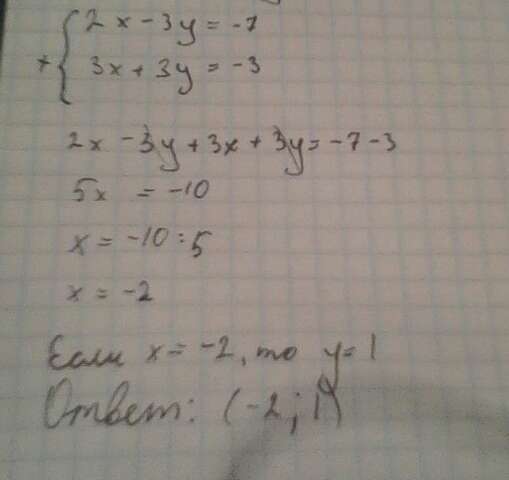 2x - 3y = -7
+ { 3x + 3y = -3
2x - 3y + 3x + 3y = -7 - 3
5x = -10
x = -10 : 5
x = -2
Если x = -2, то y = 1
Ответ: (-2; 1)